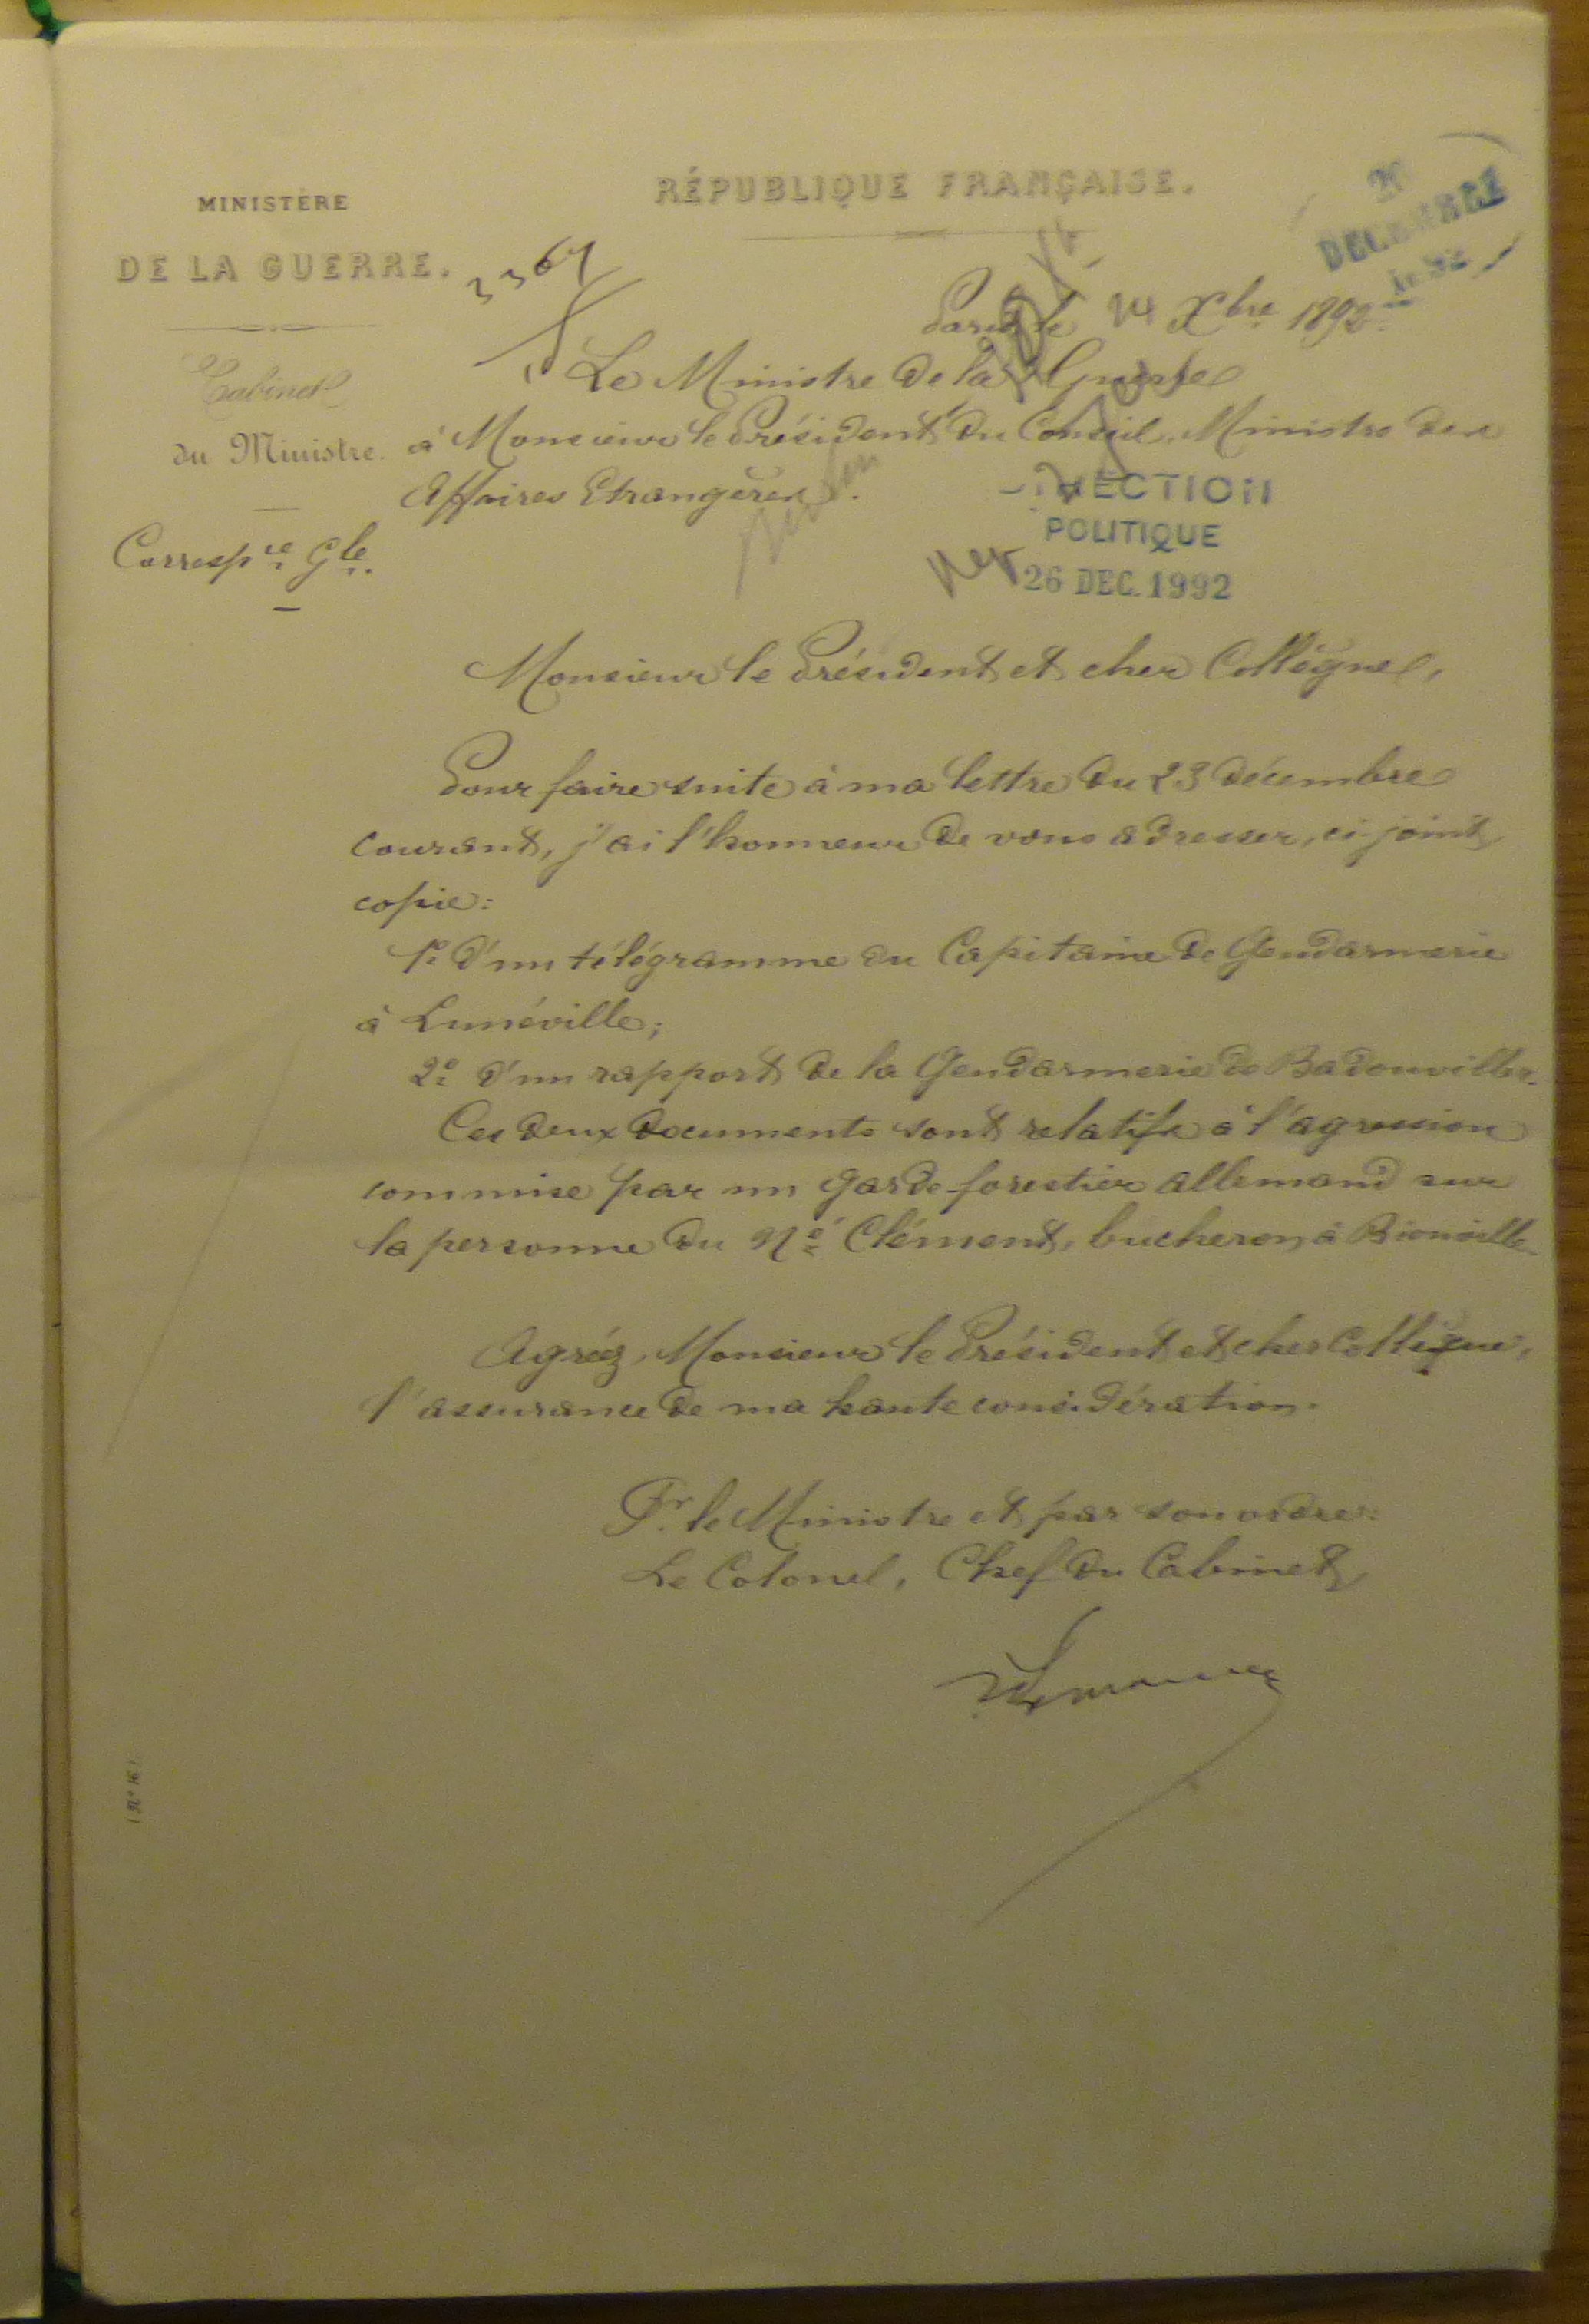 RÉPUBLIQUE FRANÇAISE.
MINISTÈRE
DE LA GUERRE.
Cabinet
du Ministre.
Corresp.ce Gle.
3367
DECEMBRE
Paris, le 24 Xbre 1892
Le Ministre de la Guerre
à Monsieur le Président du Conseil, Ministre des
Affaires Etrangères.
DIRECTION
POLITIQUE
26 DEC. 1992
Monsieur le Président et cher Collègue,
Pour faire suite à ma lettre du 23 décembre
courant, j'ai l'honneur de vous adresser, ci-joint,
copie:
1º d'un télégramme du Capitaine de Gendarmerie
à Lunéville;
2º d'un rapport de la Gendarmerie de Badonviller.
Ces deux documents sont relatifs à l'agression
commise par un garde-forestier allemand sur
la personne du Né Clément, bucheron à Bionville.
Agréez, Monsieur le Président et cher Collègue,
l'assurance de ma haute considération.
Pr. le Ministre et par son ordre:
Le Colonel, Chef du Cabinet,